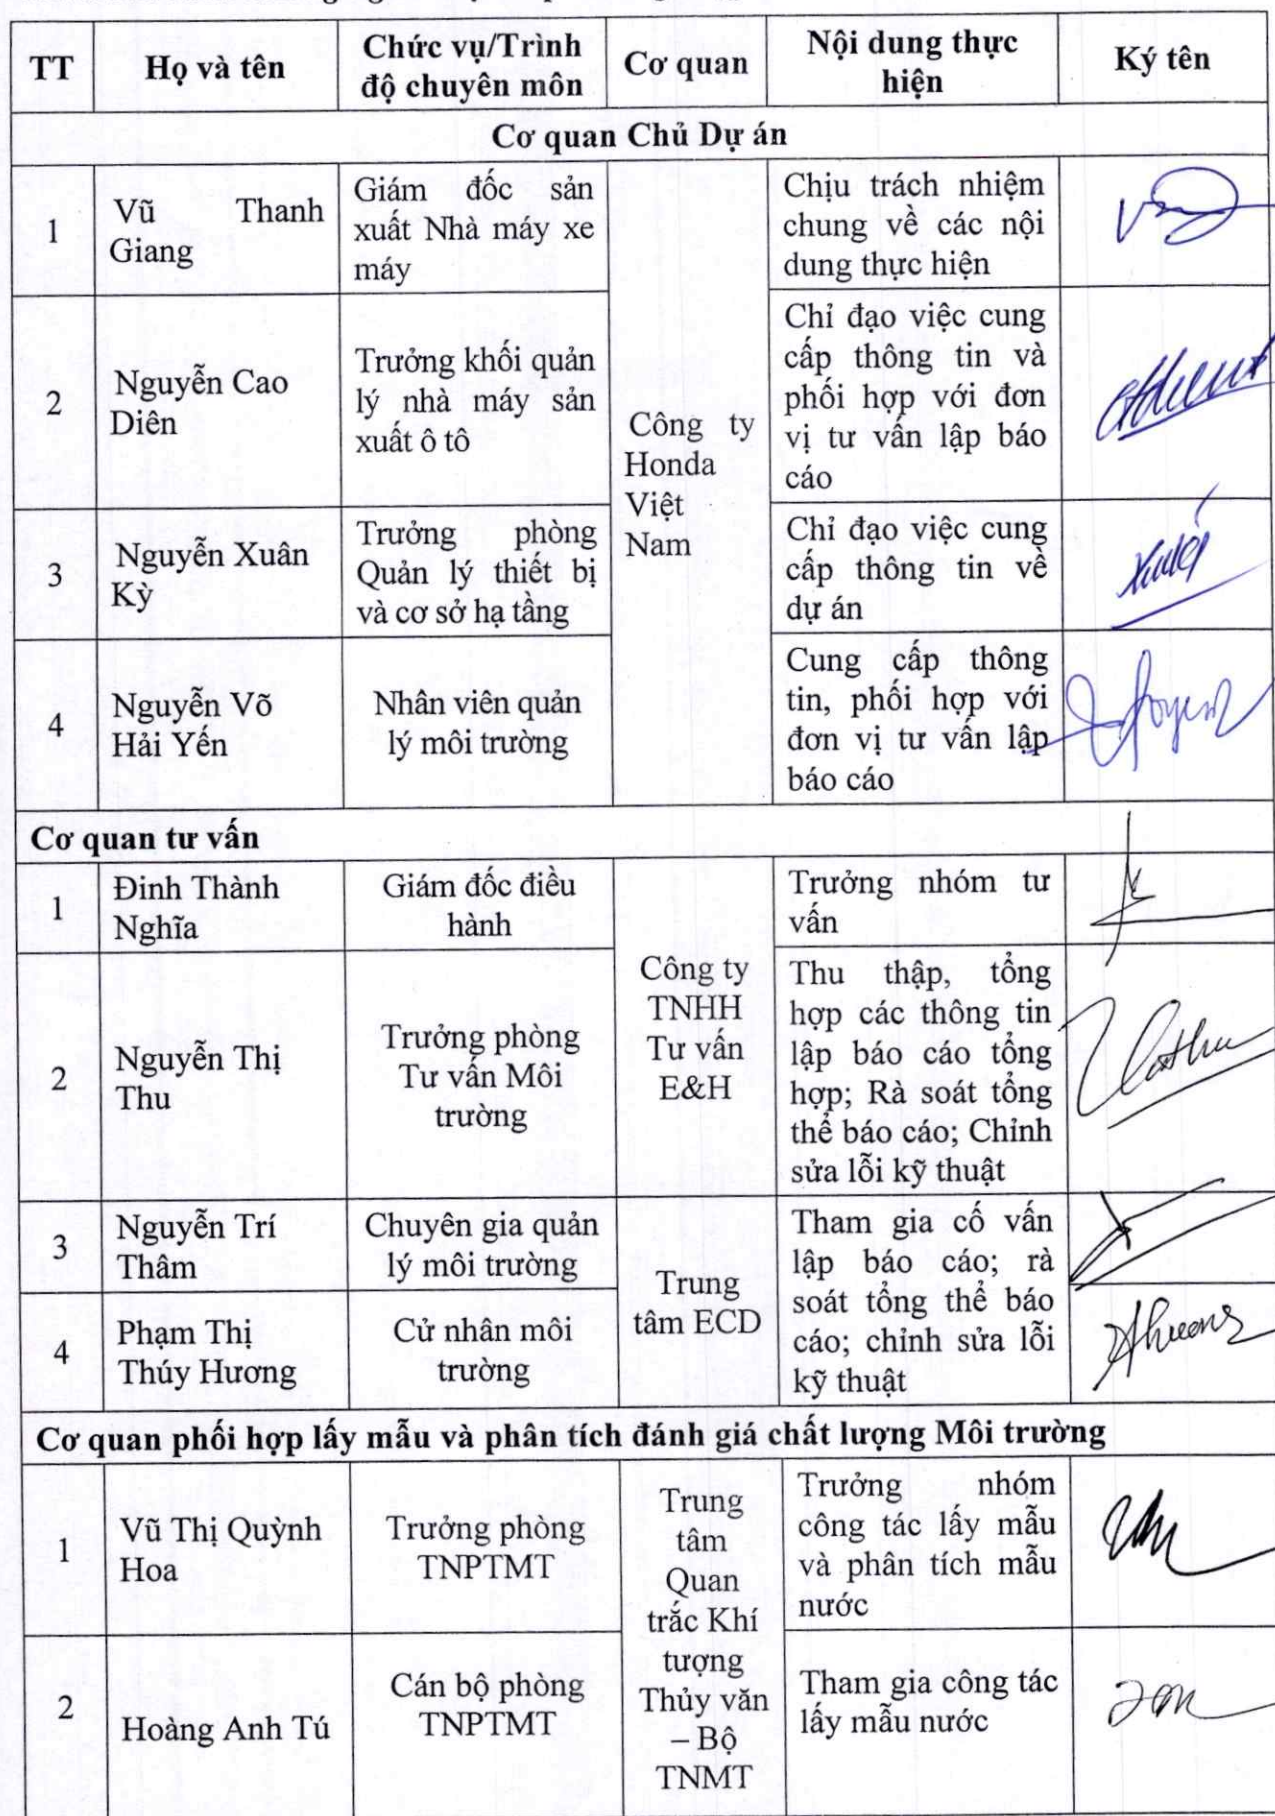 TT
Họ và tên
Chức vụ/Trình
độ chuyên môn
Cơ quan
Nội dung thực
hiện
Ký tên
Cơ quan Chủ Dự án
1
Vũ Thanh
Giang
Giám đốc sản
xuất Nhà máy xe
máy
Công ty
Honda
Việt
Nam
Chịu trách nhiệm
chung về các nội
dung thực hiện
2
Nguyễn Cao
Diên
Trưởng khối quản
lý nhà máy sản
xuất ô tô
Chỉ đạo việc cung
cấp thông tin và
phối hợp với đơn
vị tư vấn lập báo
cáo
3
Nguyễn Xuân
Kỳ
Trưởng phòng
Quản lý thiết bị
và cơ sở hạ tầng
Chỉ đạo việc cung
cấp thông tin về
dự án
4
Nguyễn Võ
Hải Yến
Nhân viên quản
lý môi trường
Cung cấp thông
tin, phối hợp với
đơn vị tư vấn lập
báo cáo
Cơ quan tư vấn
1
Đinh Thành
Nghĩa
Giám đốc điều
hành
Công ty
TNHH
Tư vấn
E&H
Trưởng nhóm tư
vấn
2
Nguyễn Thị
Thu
Trưởng phòng
Tư vấn Môi
trường
Thu thập, tổng
hợp các thông tin
lập báo cáo tổng
hợp; Rà soát tổng
thể báo cáo; Chỉnh
sửa lỗi kỹ thuật
3
Nguyễn Trí
Thâm
Chuyên gia quản
lý môi trường
Trung
tâm ECD
Tham gia cố vấn
lập báo cáo; rà
soát tổng thể báo
cáo; chỉnh sửa lỗi
kỹ thuật
4
Phạm Thị
Thúy Hương
Cử nhân môi
trường
Cơ quan phối hợp lấy mẫu và phân tích đánh giá chất lượng Môi trường
1
Vũ Thị Quỳnh
Hoa
Trưởng phòng
TNPTMT
Trung
tâm
Quan
trắc Khí
tượng
Thủy văn
– Bộ
TNMT
Trưởng nhóm
công tác lấy mẫu
và phân tích mẫu
nước
2
Hoàng Anh Tú
Cán bộ phòng
TNPTMT
Tham gia công tác
lấy mẫu nước